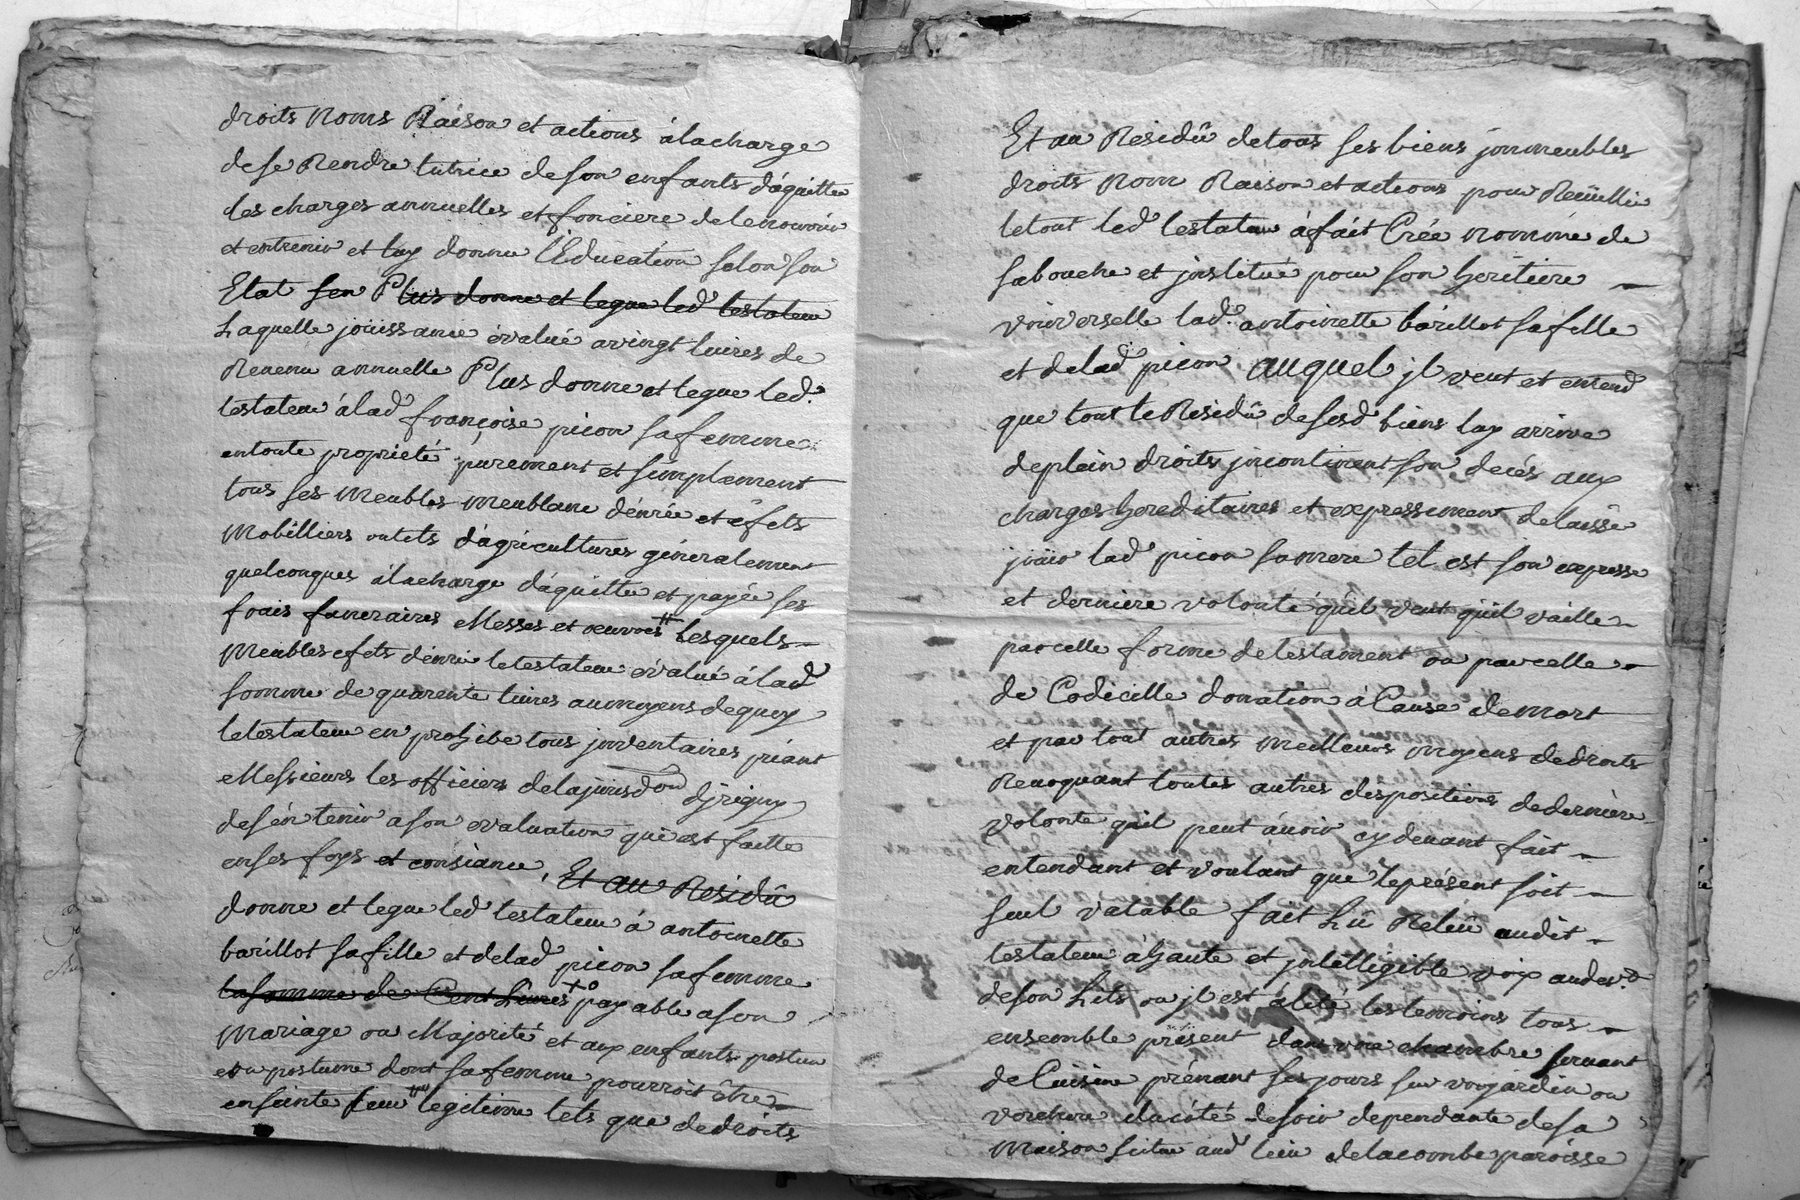 droits Noms Raison et actions à la charge
de se Rendre tutrice de son enfants d'aquitter
les charges annuelles et fonciere de le nourir
et entrenir et luy donner l'Education selon son
Etat sen Plus donne et legue led testateur
Laquelle joüissance évalué a vingt livres de
Revenu annuelle Plus donne et legue led.
testateur à lad françoise picon sa femme
en toute proprieté purement et simplement
tous ses Meubles Meublans dénrée et éfets
Mobilliers outils d'agricultures géneralement
quelconques à la charge d'aquitter et payée ses
frais funeraires Messes et œuvres # Lesquels
Meubles efets dénrée le testateur évalué à lad
somme de quarente livres au moyens de quoy
le testateur en prohibe tous jnventaires priant
Messieurs les officiers de la jurisdon d'jrigny
de s'én tenir a son evaluation qui est faitte
en ses foys et consiance, Et au Residû
donne et legue led testateur à antoinette
barillot sa fille et de lad picon sa femme
la somme de Cent Livres + payable a son
Mariage ou Majorité et aux enfants postume
ou postume dont sa femme pourroit être
enseinte leur legitime tels que de droits
Et au Residû de tous ses biens jmmeubles
droits Nom Raison et actions pour Reüillir
le tout led testateur à fait Crée nommé de
sa bouche et jnstitué pour son heritiere
vniverselle lad. antoinette barillot sa fille
et de lad picon auquel jl veut et entend
que tout le Residû de sesd biens luy arrive
de plein droits jncontinent son decés aux
charges hereditaires et expressement de laissé
joüir lad picon sa mere tel est son expresse
et derniere volonté qu'il veut qu'il vaille
par celle forme de testament ou par celle
de Codicille donation à Cause de mort
et par tout autres meilleurs moyens de droits
Revoquant toutes autres despositions de derniere
volonté qu'il peut avoir cy devant fait
entendant et voulant que le présent soit
seul valable fait Lû Relëu audit
testateur à haute et jntelligible voix au dev.t
de son Lits ou jl est alité les temoins tous
ensemble présent dans une chambre servant
de Cuisine prénant ses jours sur vn jardin ou
vercherre du côté de soir dependante de sa
Maison située aud lieu de la combe paroisse